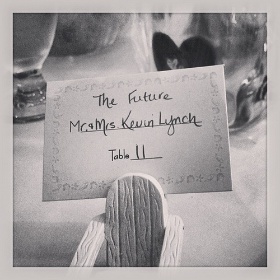 The Future
Mr. & Mrs Kevin Lynch
Table 11